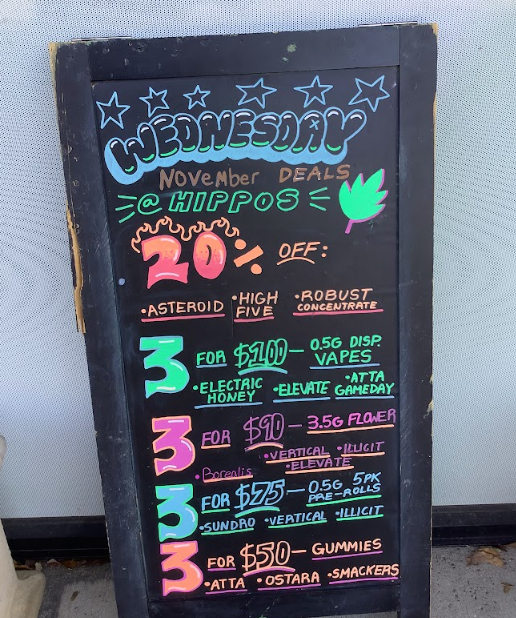 WEDNESDAY
November DEALS
@ HIPPOS
20% OFF:
•ASTEROID •HIGH FIVE •ROBUST CONCENTRATE
3 FOR $100 — 0.5G DISP. VAPES
•ELECTRIC HONEY •ELEVATE •ATTA GAMEDAY
3 FOR $90 — 3.5G FLOWER
•VERTICAL •ILLICIT
•Borealis •ELEVATE
3 FOR $75 — 0.5G 5PK PRE-ROLLS
•SUNDRO •VERTICAL •ILLICIT
3 FOR $50 — GUMMIES
•ATTA •OSTARA •SMACKERS